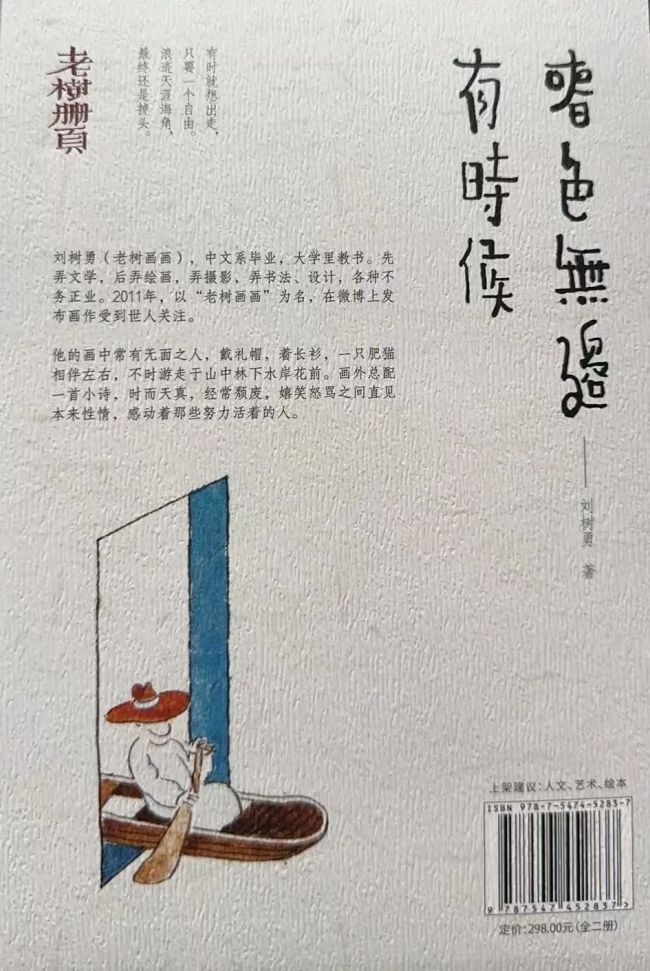 色無邊
有時候
刘树勇 著
有时就想出走，
只要一个自由。
浪迹天涯海角，
最终还是掉头。
老樹册頁
刘树勇（老树画画），中文系毕业，大学里教书。先
弄文学，后弄绘画，弄摄影，弄书法、设计，各种不
务正业。2011年，以“老树画画”为名，在微博上发
布画作受到世人关注。
他的画中常有无面之人，戴礼帽，着长衫，一只肥猫
相伴左右，不时游走于山中林下水岸花前。画外总配
一首小诗，时而天真，经常颓废，嬉笑怒骂之间直见
本来性情，感动着那些努力活着的人。
上架建议：人文、艺术、绘本
ISBN 978-7-5474-5283-7
9 787547 452837 >
定价：298.00元（全二册）